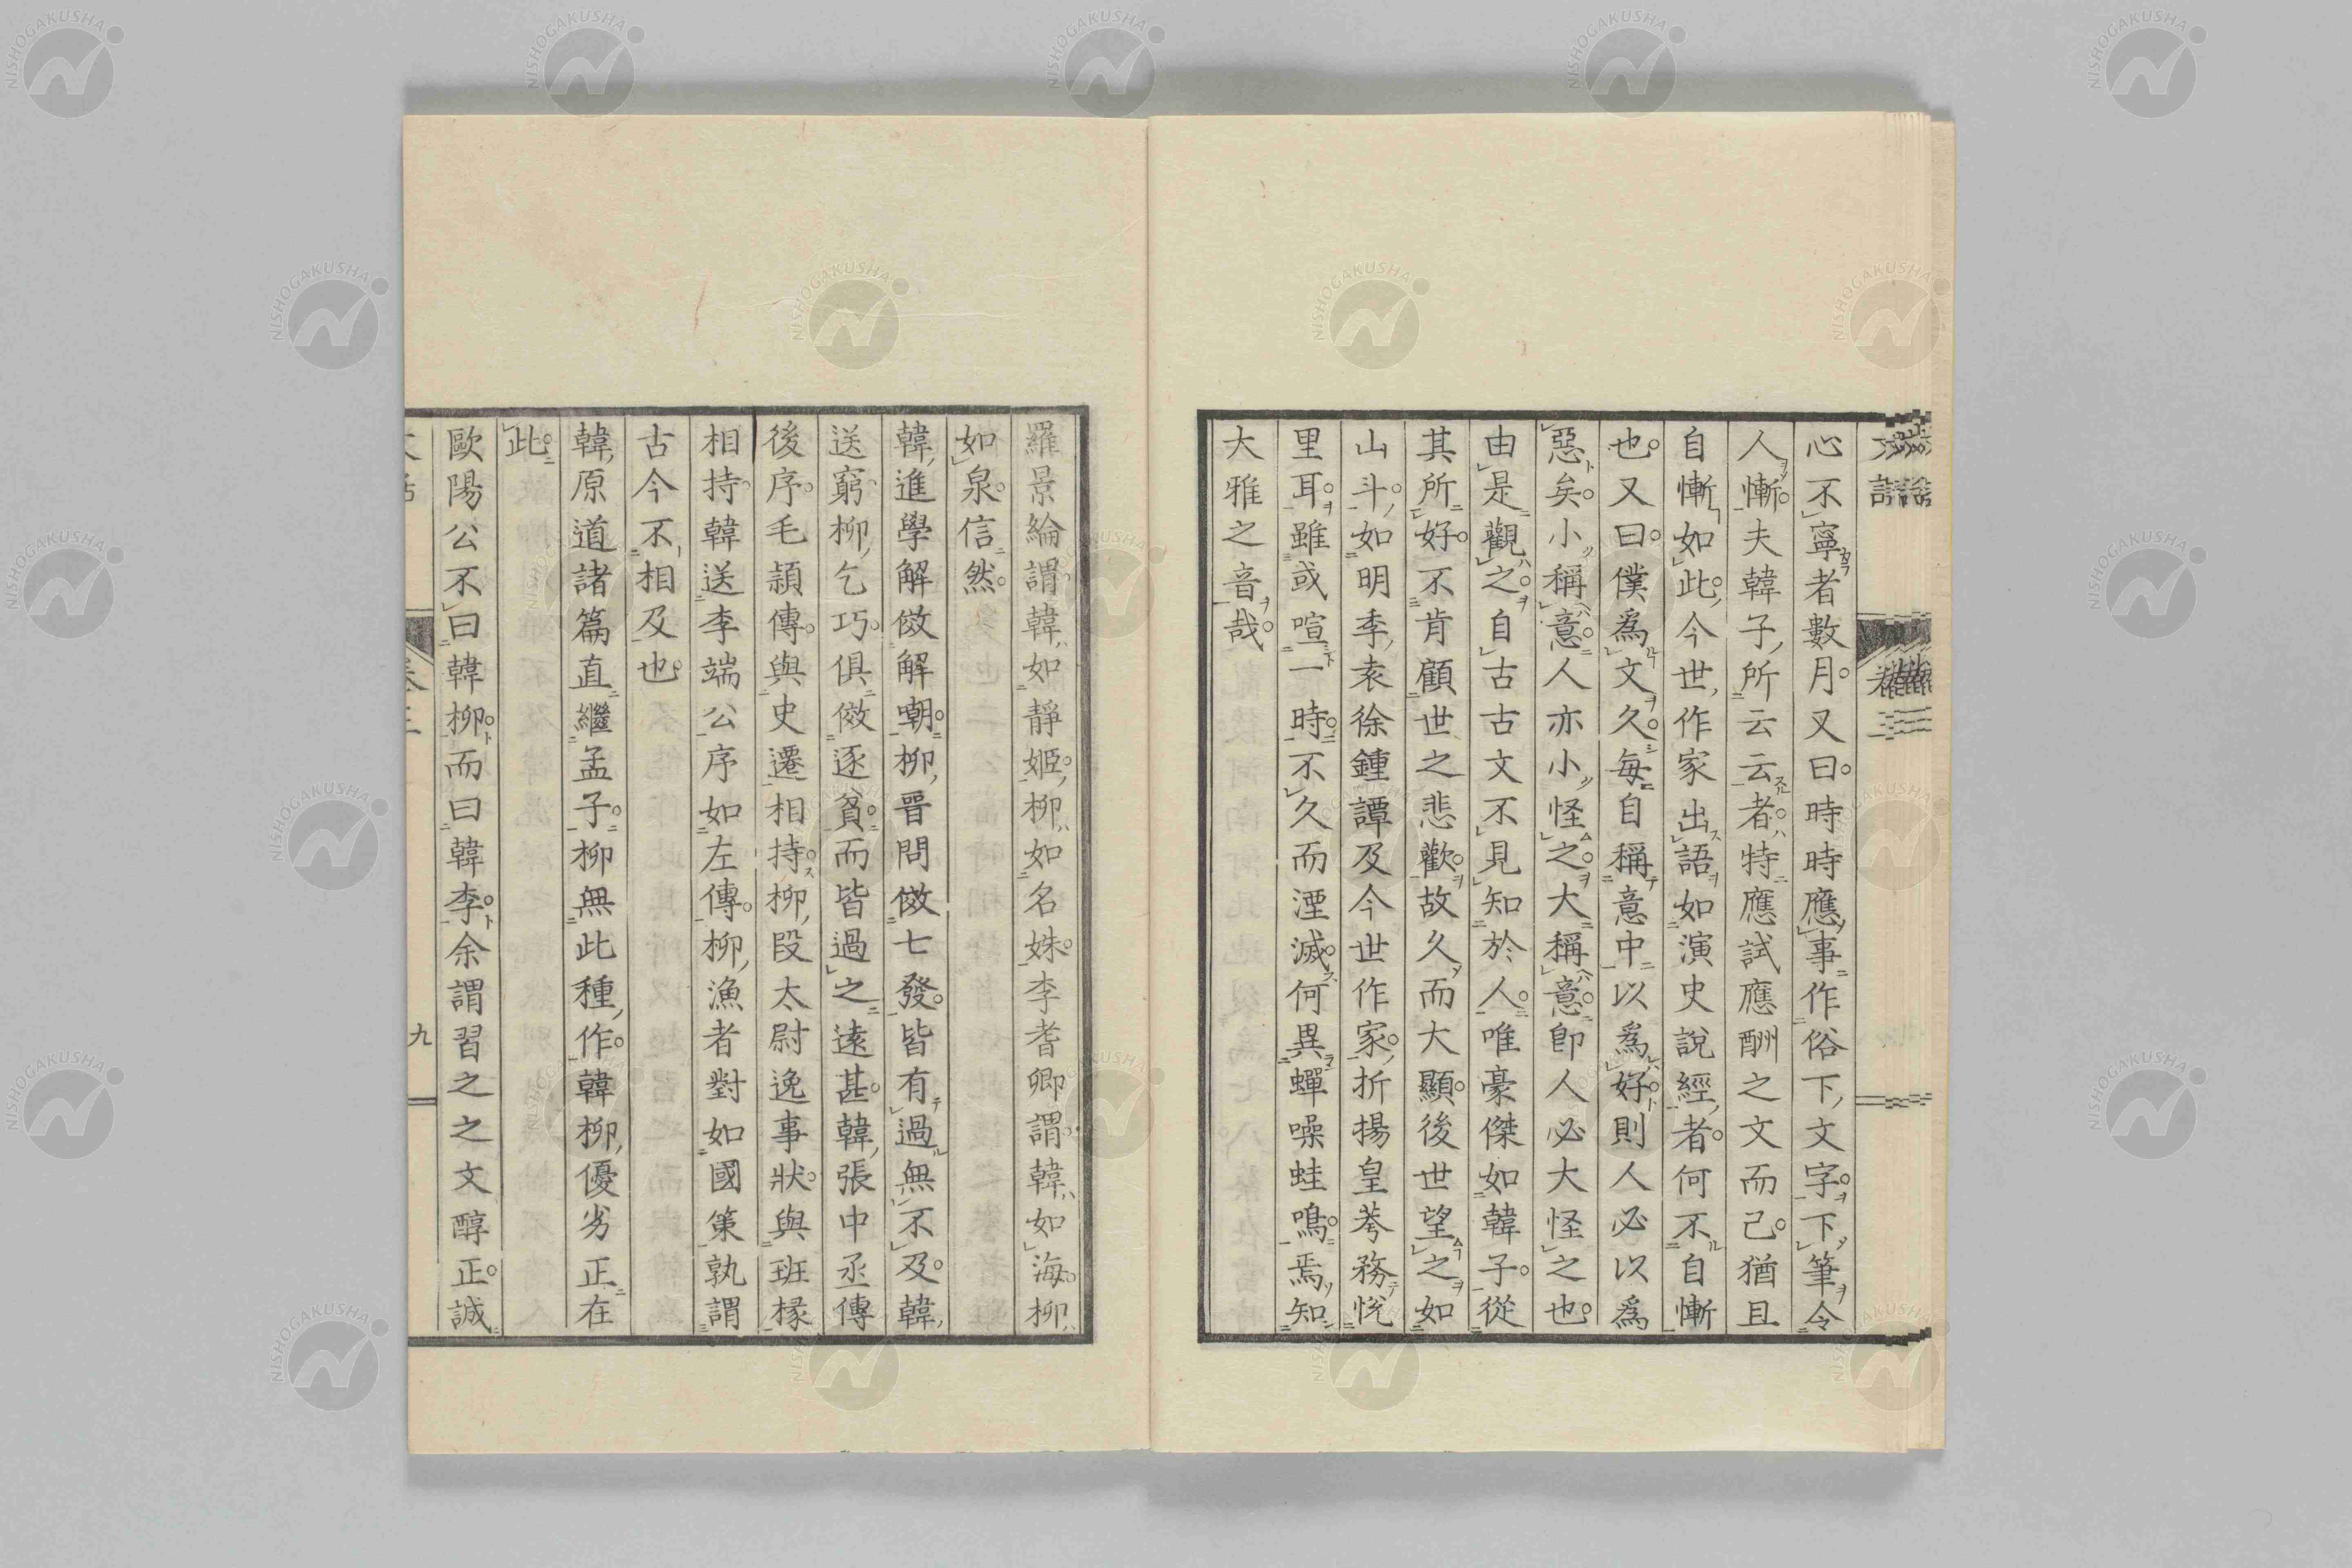 心不寧者數月。又曰。時時應事作俗下文字。下筆令
人慚。夫韓子所云云者。特應試應酬之文而已。猶且
自慚如此。今世作家出語如演史說經者。何不自慚
也。又曰。僕爲文久。每自稱意中以爲好。則人必以爲
惡矣。小稱意。人亦小怪之。大稱意。卽人必大怪之也。
由是觀之。自古古文不見知於人。唯豪傑如韓子。從
其所好。不肯顧世之悲歡。故久而大顯。後世望之如
山斗。如明季袁徐鍾譚及今世作家。折揚皇荂務悅
里耳。雖或喧一時。不久而湮滅。何異蟬噪蛙鳴。焉知
大雅之音哉。
羅景綸謂韓如靜姬。柳如名姝。李耆卿謂。韓如海。柳
如泉。信然。
韓進學解倣解嘲。柳晉問倣七發。皆有過無不及。韓
送窮柳乞巧。俱倣逐貧。而皆過之遠甚。韓張中丞傳
後序。毛穎傳。與史遷相持。柳段太尉逸事狀。與班椽
相持。韓送李端公序如左傳。柳漁者對如國策。孰謂
古今不相及也。
韓原道諸篇直繼孟子。柳無此種作。韓柳優劣正在
此。
歐陽公不曰韓柳。而曰韓李。余謂習之之文醇正。誠
九
NISHOGAKUSHA